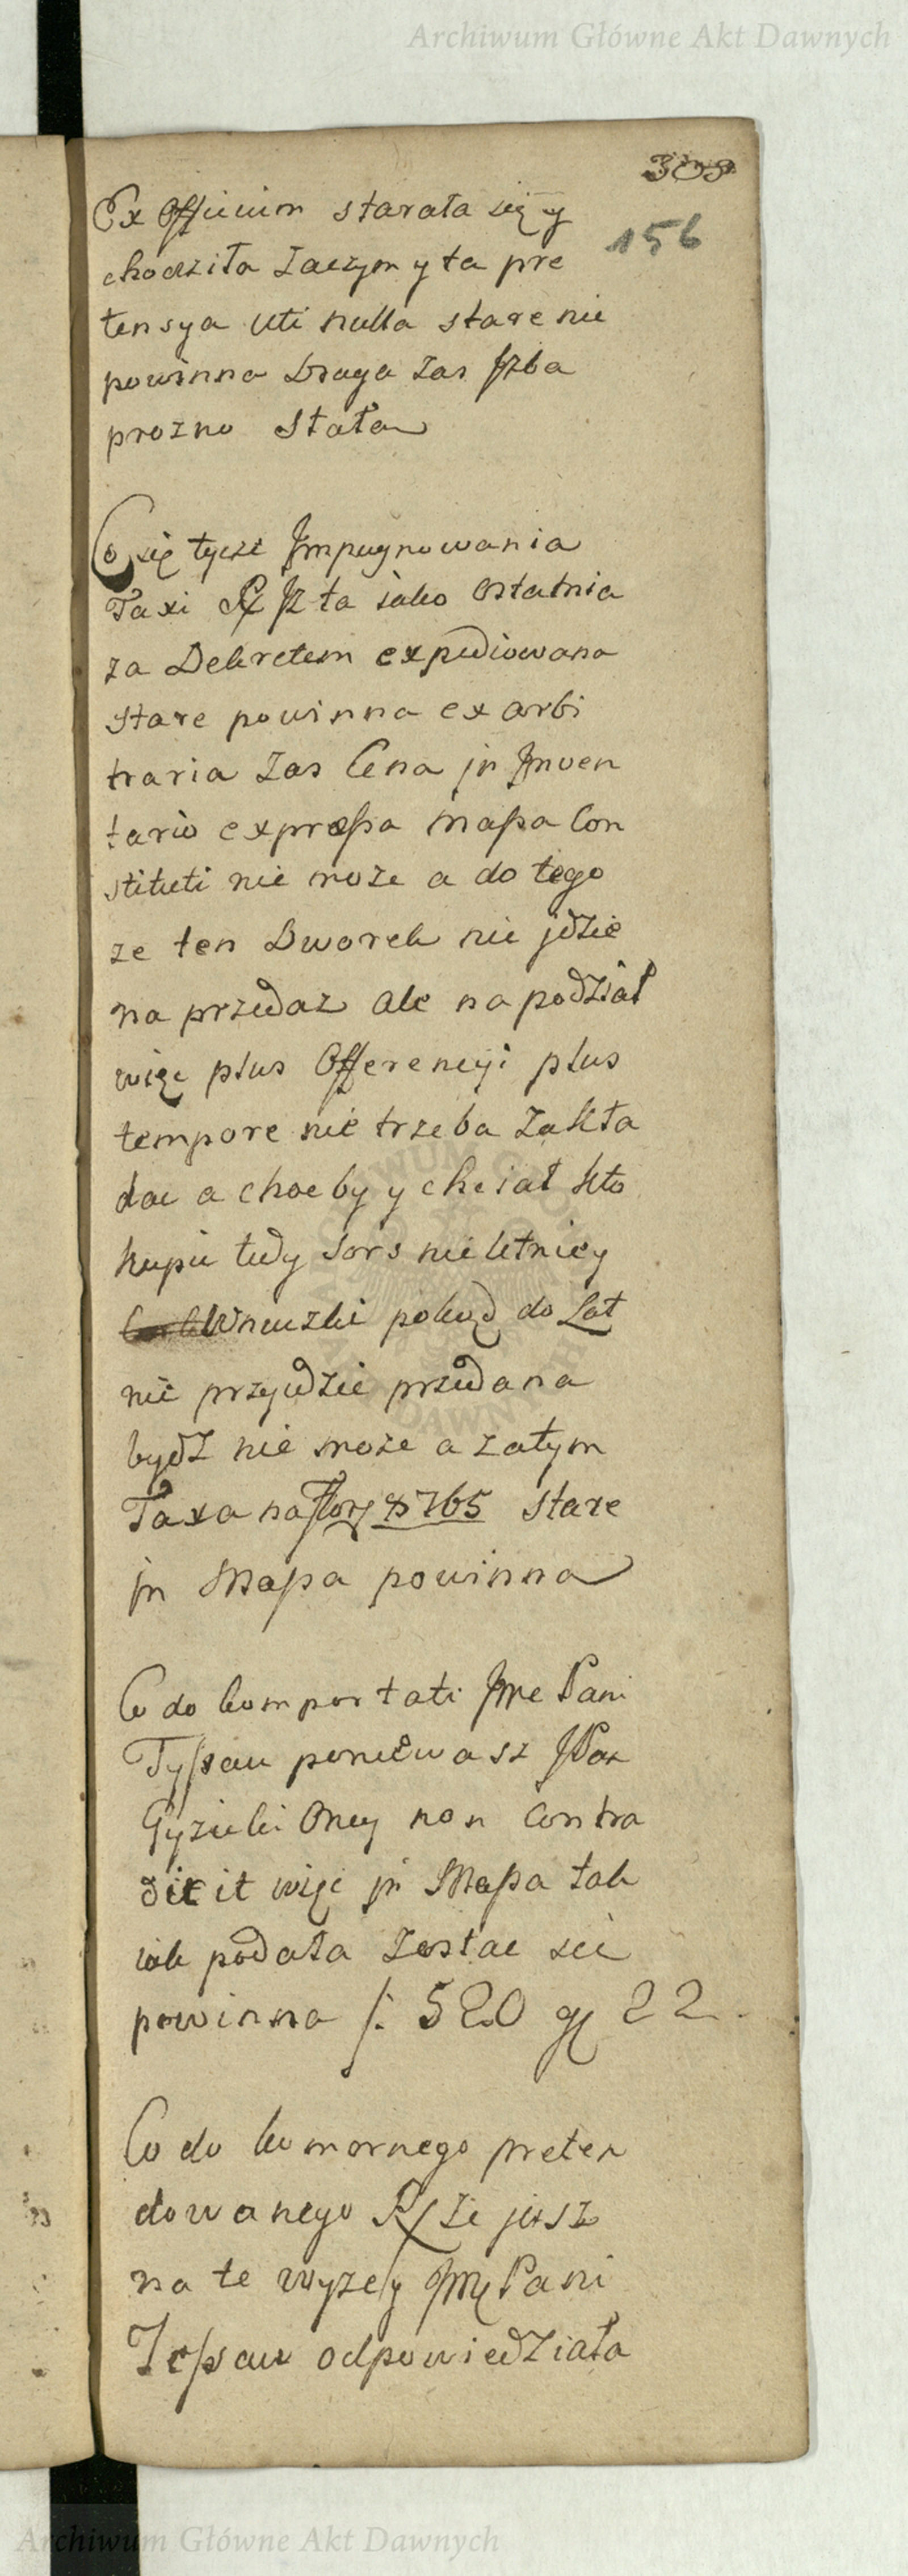 Archiwum Główne Akt Dawnych
156
Ex Officium starała się y
chodziła Zaczym y ta pre
tensya Uti nulla stare nie
powinna Druga Zas Jzba
prozno Stała
Co się tycze Jmpugnowania
Taxi Rx Jz ta iako Ostatnia
za Dekretem expediowana
stare powinna exarbi
traria Zas Cena jn Jnven
tario expressa massa Con
stituti nie może a do tego
ze ten Dworek nie jdzie
na przedaz ale na podział
więc plus Offerencyi plus
tempore nie trzeba Zakła
dac a chocby y chciał kto
kupic tedy Sors nieletniey
Wnuczki pokąd do Lat
nie przyidzie przedana
bydz nie może a zatym
Taxa na 8765 stare
jn Massa powinna
Co do komportati Jme Pani
Tyssau poniewasz JPan
Gyzicki Oney non Contra
dicit więc jn Massa tak
iak podała Zostac sie
powinna f: 520 gr 22.
Co do komornego preten
dowanego Rx Ze jusz
na te wyzey Jmę Pani
Tessau odpowiedziała
Archiwum Główne Akt Dawnych